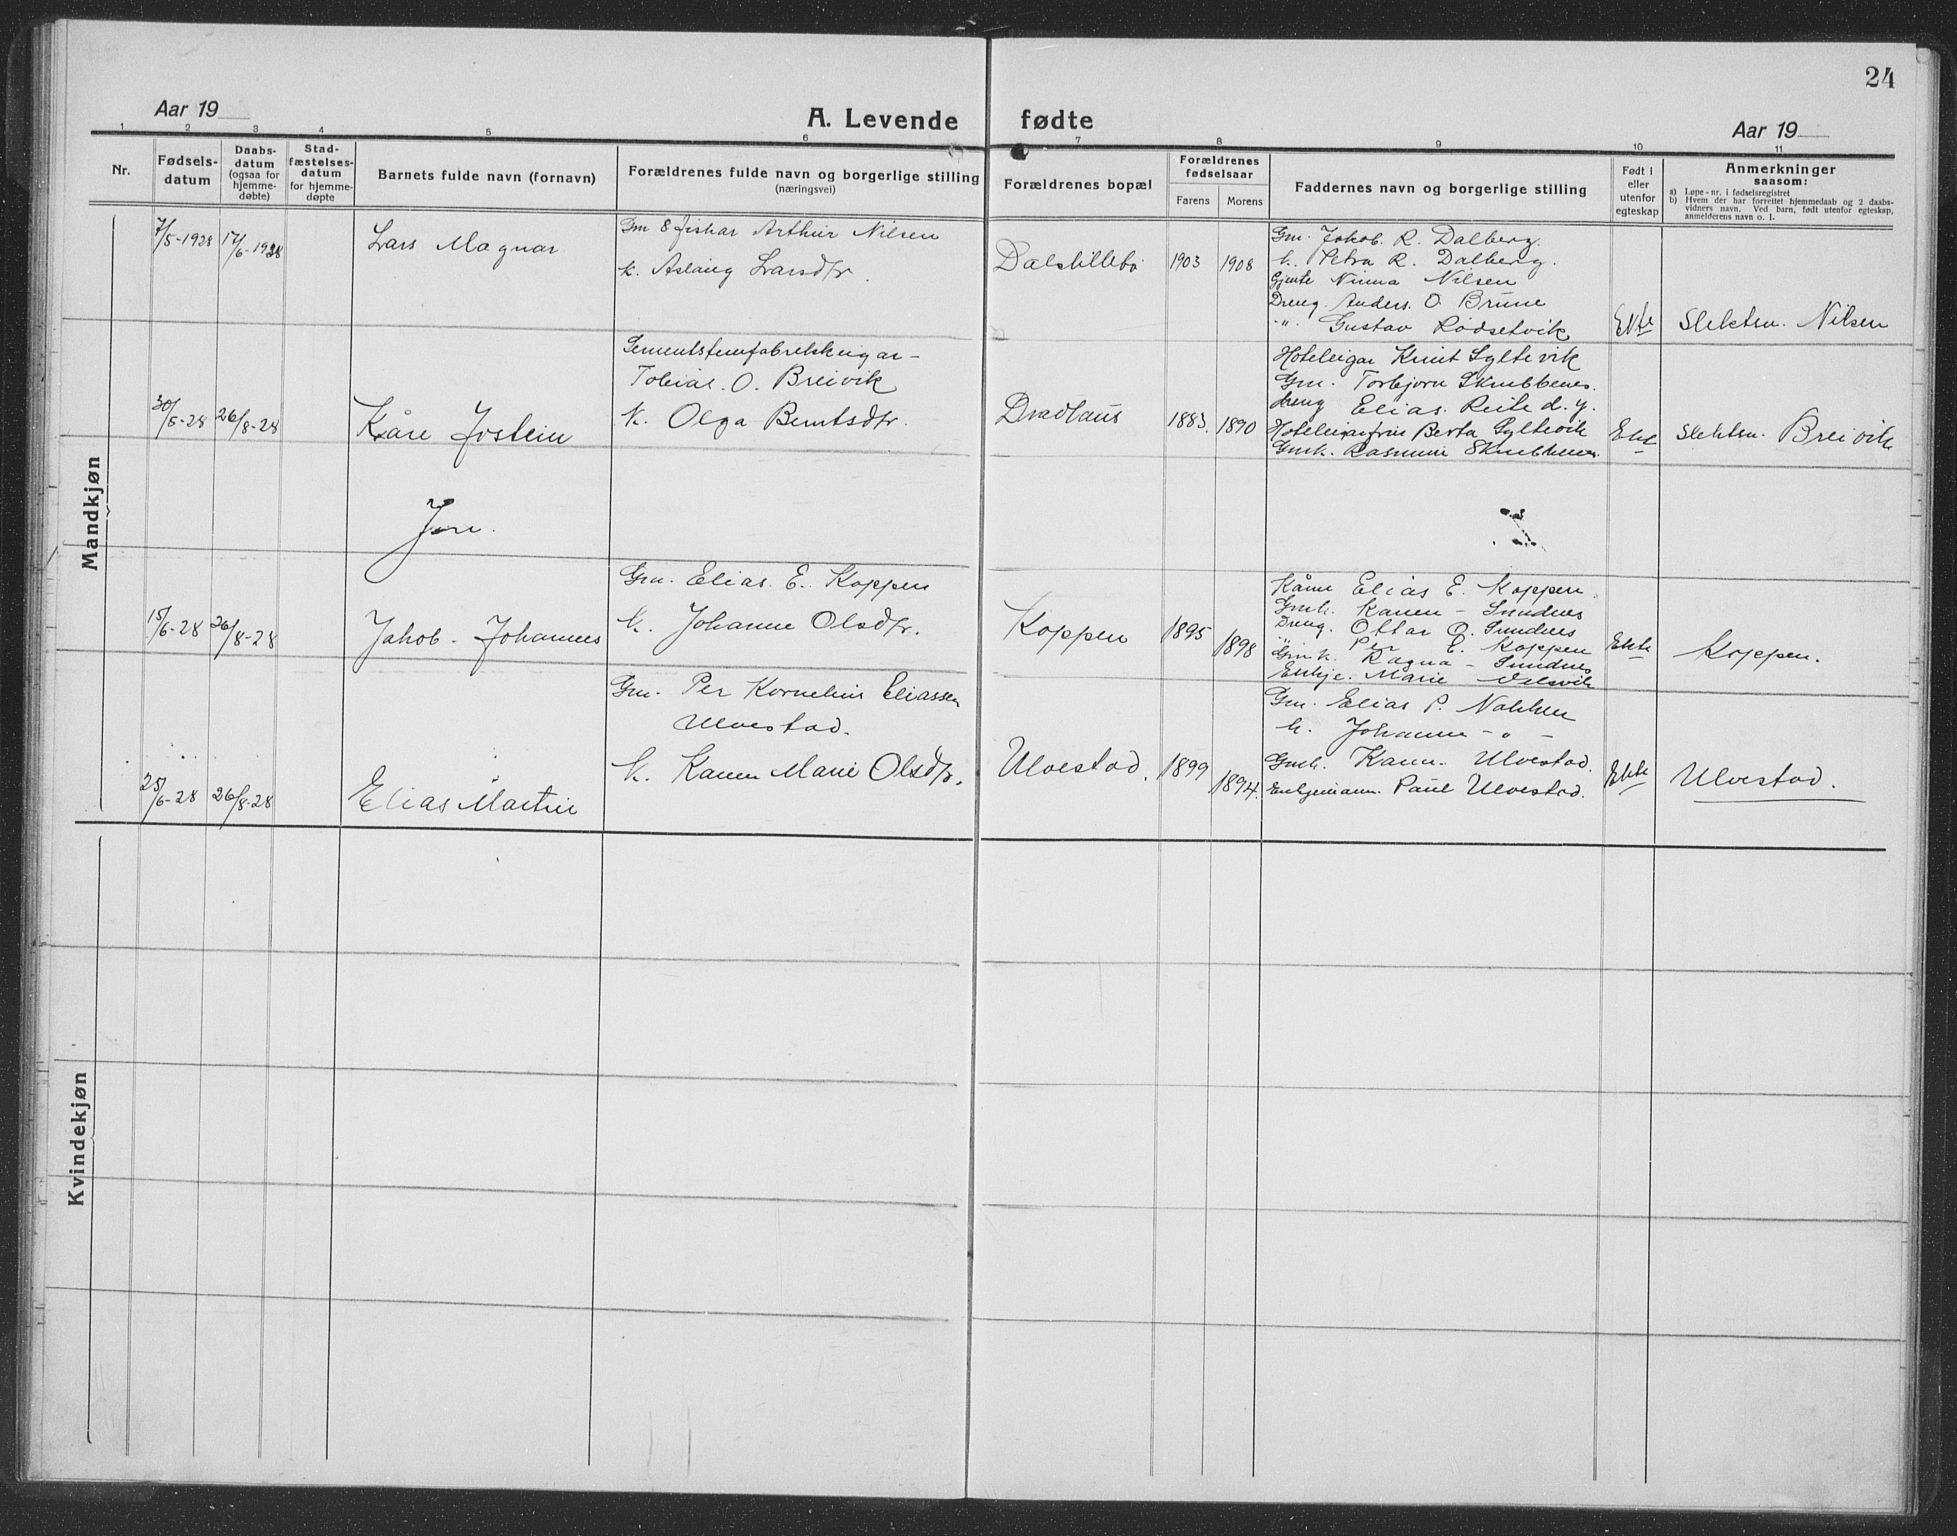 24
Aar 19
A. Levende fødte
Aar 19
1 2 3 4 5 6 7 8 9 10 11
Nr.
Fødsels-
datum
Daabs-
datum
(ogsaa for
hjemme-
døbte)
Stad-
fæstelses-
datum
for hjemme-
døpte
Barnets fulde navn (fornavn)
Forældrenes fulde navn og borgerlige stilling
(næringsvei)
Forældrenes bopæl
Forældrenes
fødselsaar
Farens Morens
Faddernes navn og borgerlige stilling
Født i
eller
utenfor
egteskap
Anmerkninger
saasom:
a) Løpe-nr. i fødselsregistret
b) Hvem der har forrettet hjemmedaab og 2 daabs-
vidners navn. Ved barn, født utenfor egteskap,
anmelderens navn o. l.
Mandkjøn
7/5-1928 17/6-1928
Lars Magnar
Gm & fiskar Arthur Nilsen
k. Aslaug Larsdtr.
1903 1908
Gm. Jakob. R. Dalberg.
k. Petra R. Dalberg.
Gjente Ninna Nilsen
Dreng. Anders. O. Brune
-"- Gustav Rødsetvik
Ekte
Slektsn. Nilsen
30/5-28 26/8-28
Kåre Jostein
Tobias. O. Breivik
K. Olga Berntsdtr.
1883. 1890
Hoteleigar Knut Syltevik
Gm. Torbjørn Skrubbenes.
dreng Elias. Reite d. y.
Hoteleigarfru Berta Syltevik
Gmk. Rasmine Skrubbenes.
Ekte
Slektsn. Breivik
15/6-28 26/8-28
Jakob - Johannes
Gm. Elias. E. Koppen
K. Johanne Olsdtr.
Koppen
1895 1898
Kårm Elias E. Koppen
Gmk. Karen - Sundnes
Dreng. Ottar O. Sundnes
-"- Per E. Koppen
Gmk. Ragna - Sundnes
Enkje. Marie
Ekte
Koppen.
25/6-28 26/8-28
Elias Martin
Gm. Per Kornelius Eliassen
Ulvestad.
K. Karen Marie Olsdtr.
Ulvestad.
1899 1894.
Gm. Elias P. Nakken
k. Johanne - " -
Gmk. Karen. Ulvestad.
Enkjemann. Paul Ulvestad.
Ekte
Ulvestad.
Kvindekjøn